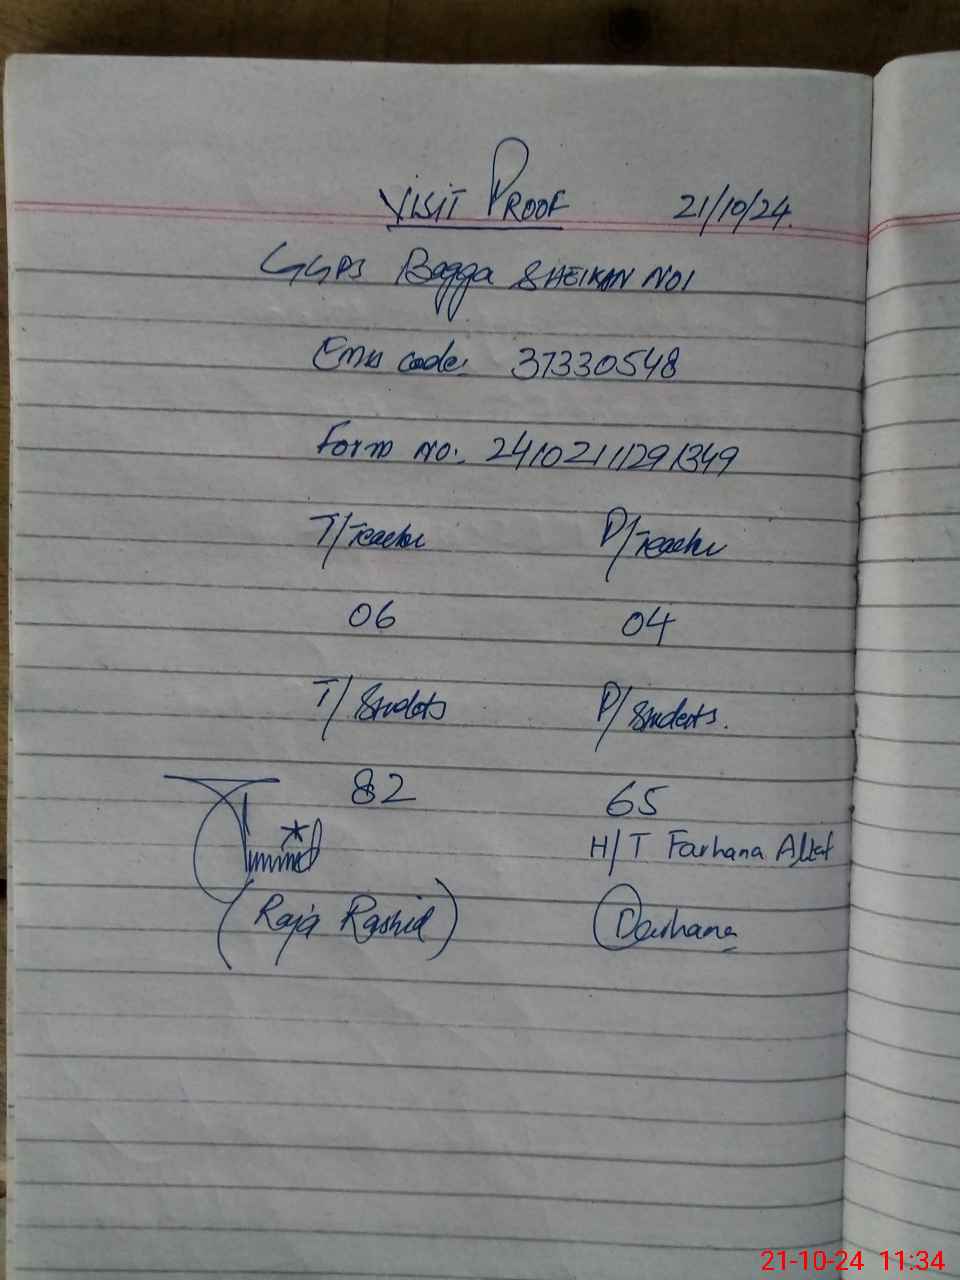 VISIT PROOF 21/10/24.
GGPS Bagga SHEIKAN NO1
Emis code: 37330548
Form no: 24102111291349
T/Teacher P/Teacher
06 04
T/Students P/Students.
82 65
H/T Farhana Altaf
(Raja Rashid) Farhana
21-10-24 11:34